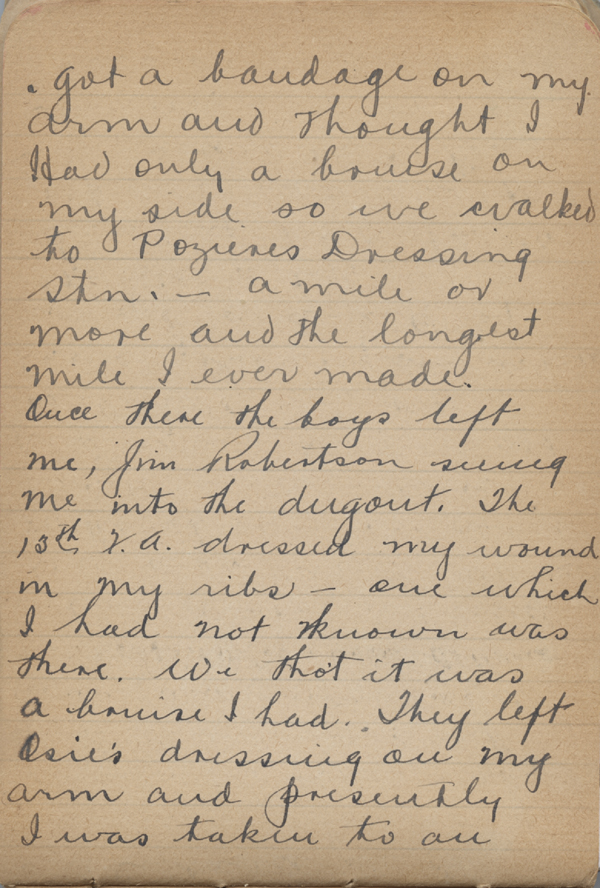 . got a bandage on my
arm and thought I
Had only a bruise on
my side so we walked
to Pozieres Dressing
Stn. — a mile or
more and the longest
mile I ever made.
Once there the boys left
me, Jim Robertson seeing
me into the dugout. The
13th F.A. dressed my wound
in my ribs — one which
I had not known was
there. We tho't it was
a bruise I had. They left
Osie's dressing on my
arm and presently
I was taken to an